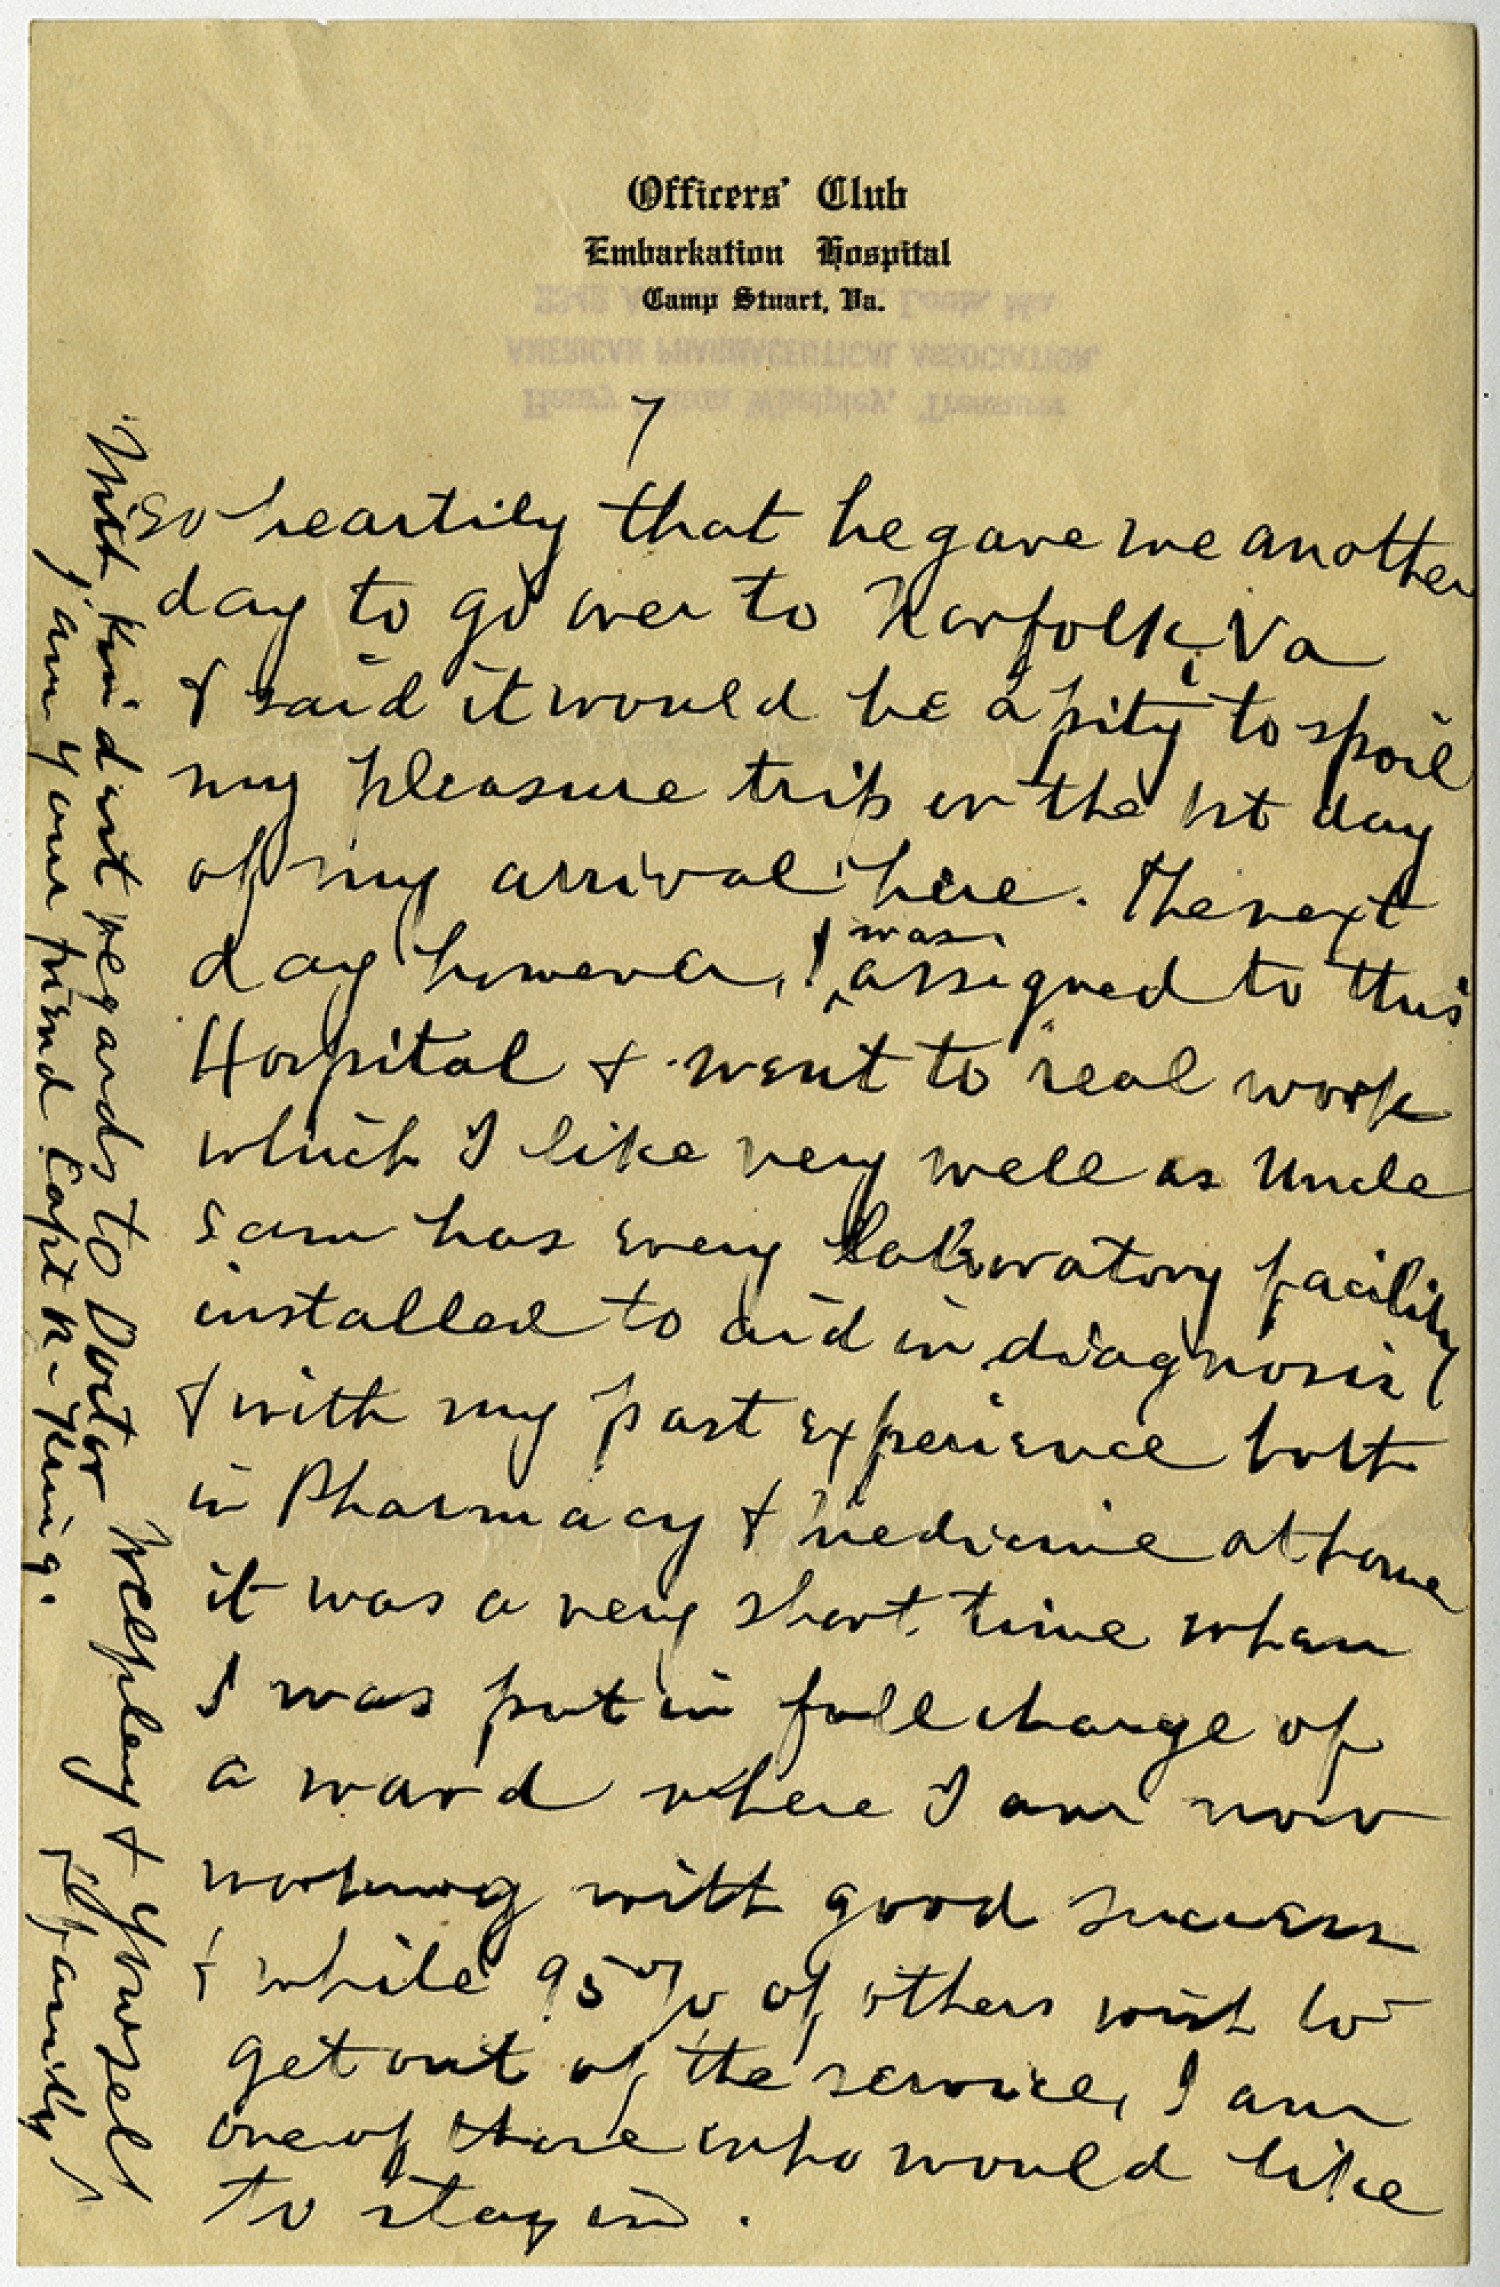 Officers' Club
Embarkation Hospital
Camp Stuart, Va.
Henry Milton Whelpley, Treasurer
AMERICAN PHARMACEUTICAL ASSOCIATION,
2342 Albion Place, St. Louis, Mo.
7
so heartily that he gave me another
day to go over to Norfolk, Va
& said it would be a pity to spoil
my pleasure trip on the 1st day
of my arrival here. The next
day however, I was assigned to this
Hospital & went to real work
which I like very well as Uncle
Sam has every laboratory facility
installed to aid in diagnosis
& with my past experience both
in Pharmacy & medicine at home
it was a very short time when
I was put in full charge of
a ward where I am now
working with good success
& while 95% of others wish to
get out of the service, I am
one of those who would like
to stay in.
With kindest regards to Doctor Whelpley & yourself
& family
I am your friend Capt